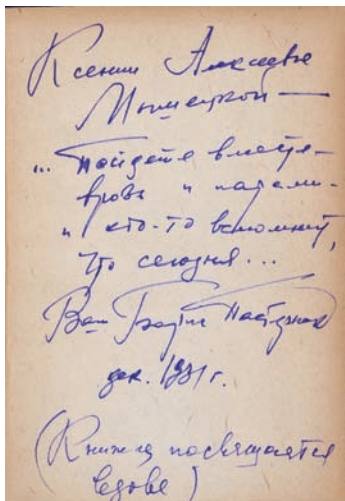 Ксении Алексеевне
Мышецкой —
... пойдете вместе —
врозь и парами -
и кто-то вспомнит,
что сегодня...
Ваш Борис Пастернак
дек. 1931 г.
(Книжка посвящается
вдове)